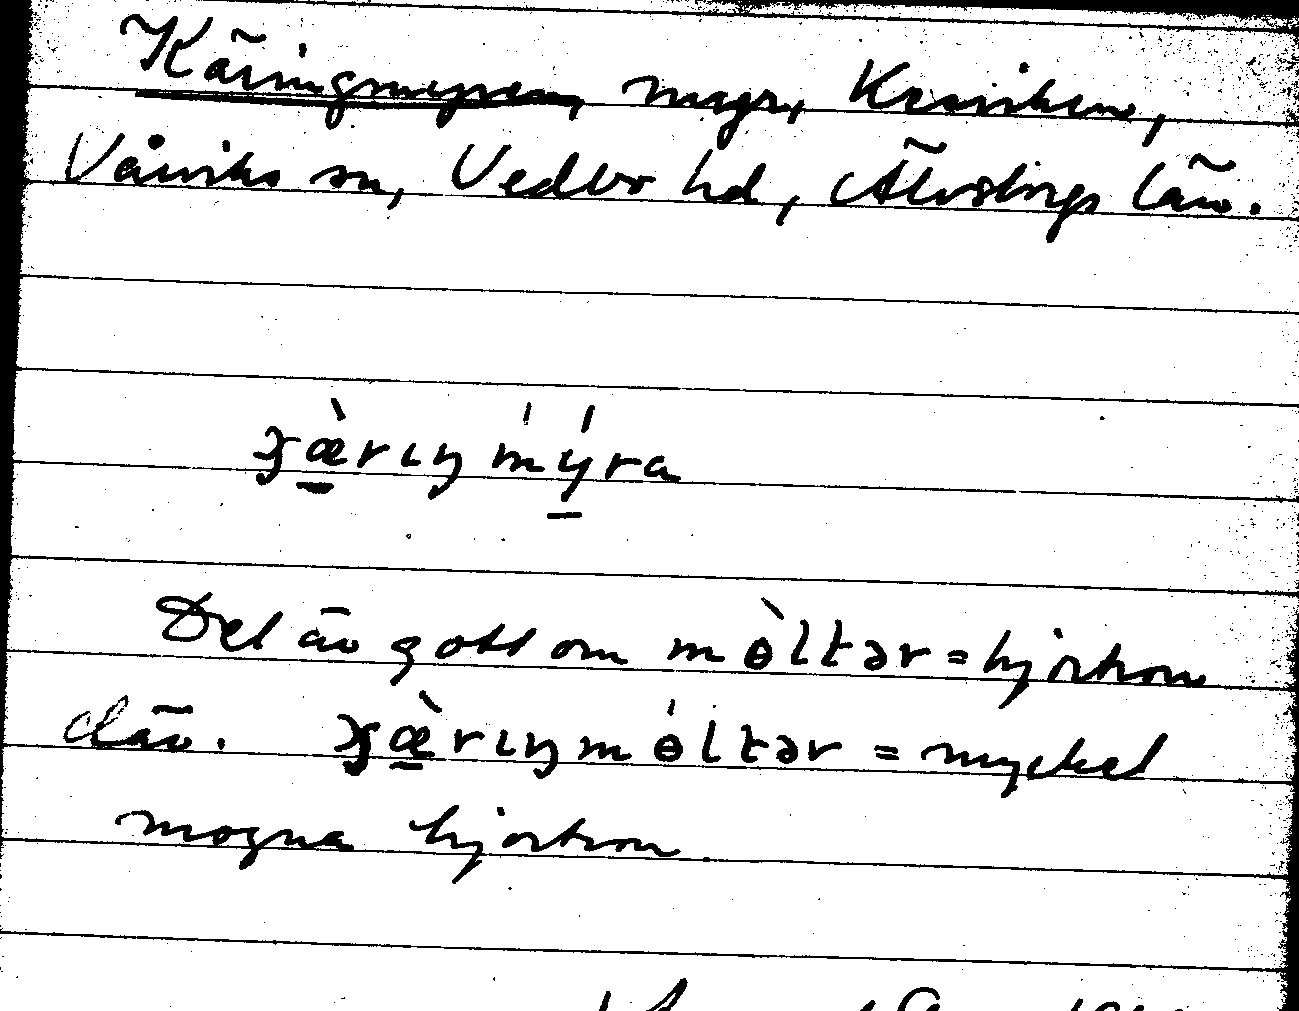 Käringmyren, magr, Kasviken,
Vårviks sn, Vedbo hd, Älvsborgs län.
ɟæ̀rıŋmýra
Det är gott om mɵ̀ltər = hjortron
där. ɟæ̀rıŋmɵ́ltər = mycket
mogna hjortron